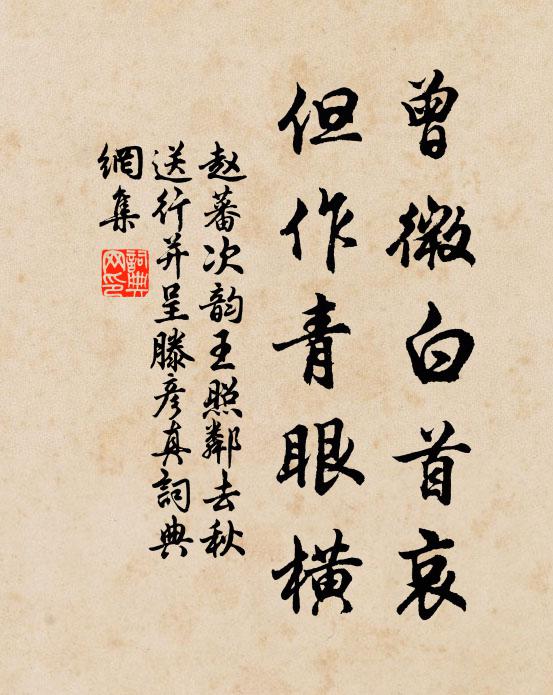 曾微白首哀
但作青眼横
赵蕃次韵王照鄰去秋
送行并呈滕彦真詞典
網集
詞典网印